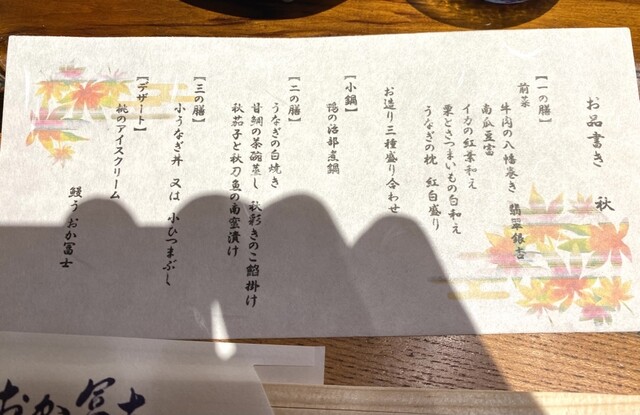 お品書き 秋
【一の膳】
前菜
牛肉の八幡巻き 翡翠銀杏
南瓜豆富
イカの紅葉和え
栗とさつまいもの白和え
うなぎの枕 紅白盛り
お造り三種盛り合わせ
【小鍋】
鴨の治部煮鍋
【二の膳】
うなぎの白焼き
甘鯛の茶碗蒸し 秋彩きのこ餡掛け
秋茄子と秋刀魚の南蛮漬け
【三の膳】
小うなぎ丼 又は 小ひつまぶし
【デザート】
桃のアイスクリーム
鰻う おか冨士
おか冨士